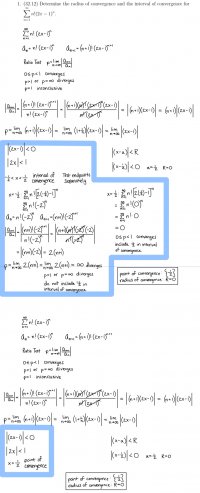 1. (§3.12) Determine the radius of convergence and the interval of convergence for
∑ n!(2x − 1)ⁿ.
∑ n!(2x-1)ⁿ
aₙ = n!(2x-1)ⁿ aₙ₊₁ = (n+1)!(2x-1)ⁿ⁺¹
Ratio Test ρ = lim n→∞ |aₙ₊₁/aₙ|
0≤ρ<1 converges
ρ>1 or ρ=∞ diverges
ρ=1 inconclusive
|aₙ₊₁/aₙ| = |(n+1)!(2x-1)ⁿ⁺¹ / n!(2x-1)ⁿ| = |(n+1)n!(2x-1)ⁿ(2x-1) / n!(2x-1)ⁿ| = |(n+1)(2x-1)| = (n+1)|2x-1|
|2x-1| < 0
|2x| < 1
interval of convergence
Test endpoints separately
|(x-a)| < R
|(x-½)| < 0 x=½ R=0
= ∑ n!(0)ⁿ
= ∑ 0
= 0
aₙ = n!(-2)ⁿ aₙ₊₁ = (n+1)!(-2)ⁿ⁺¹
= |(n+1)(-2)| = 2(n+1)
ρ = lim n→∞ 2(n+1) = lim n→∞ 2(n+1) = ∞ diverges
ρ>1 or ρ=∞ diverges
do not include -½ in interval of convergence
0≤ρ<1 converges
include ½ in interval of convergence
point of convergence {½}
radius of convergence R=0
∑ n!(2x-1)ⁿ
aₙ = n!(2x-1)ⁿ aₙ₊₁ = (n+1)!(2x-1)ⁿ⁺¹
Ratio Test ρ = lim n→∞ |aₙ₊₁/aₙ|
0≤ρ<1 converges
ρ>1 or ρ=∞ diverges
ρ=1 inconclusive
|aₙ₊₁/aₙ| = |(n+1)!(2x-1)ⁿ⁺¹ / n!(2x-1)ⁿ| = |(n+1)n!(2x-1)ⁿ(2x-1) / n!(2x-1)ⁿ| = |(n+1)(2x-1)| = (n+1)|2x-1|
|2x-1| < 0
|2x| < 1
x=½ point of convergence
|(x-a)| < R
|(x-½)| < 0 x=½ R=0
point of convergence {½}
radius of convergence R=0